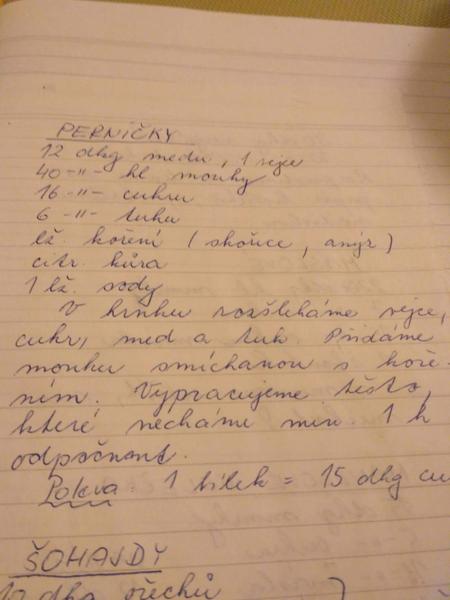 PERNÍČKY
12 dkg medu, 1 vejce
40 -"- hl. mouky
16 -"- cukru
6 -"- tuku
lž. koření (skořice, anýz)
citr. kůra
1 lž. sody
V hrnku rozšleháme vejce,
cukr, med a tuk Přidáme
mouku smíchanou s koře-
ním. Vypracujeme těsto,
které necháme min 1 h
odpočnout.
Poleva: 1 bílek = 15 dkg cu
ŠOHAJDY
10 dkg ořechů